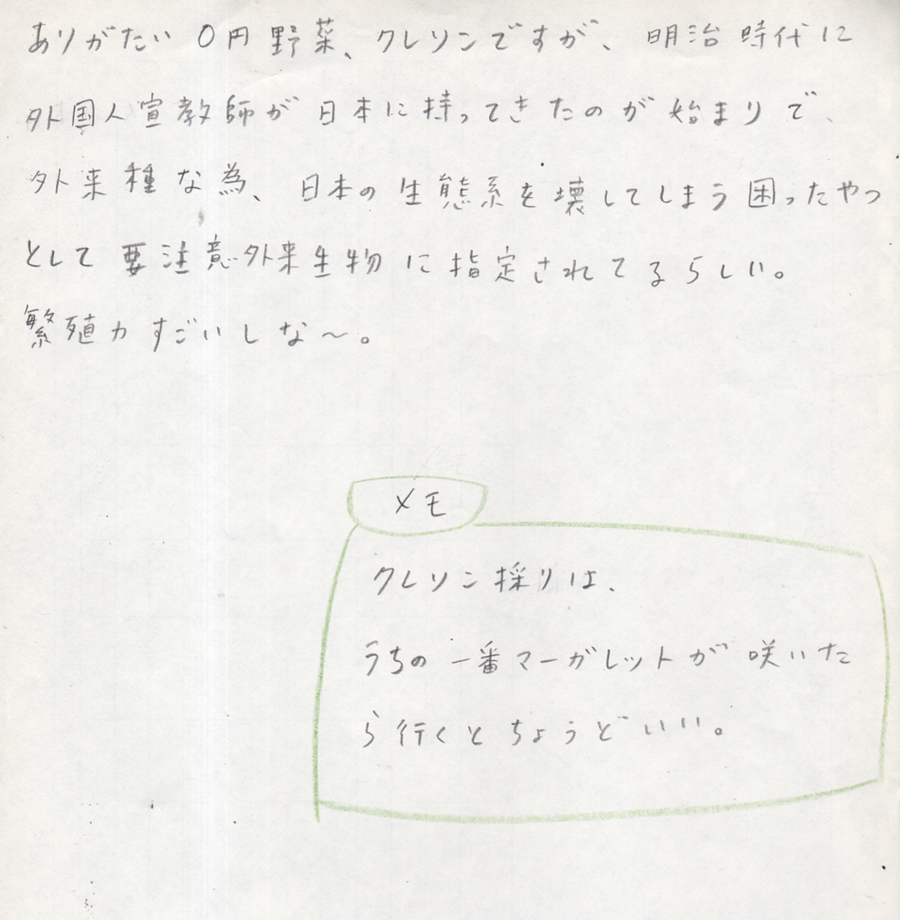 ありがたい0円野菜、クレソンですが、明治時代に
外国人宣教師が日本に持ってきたのが始まりで、
外来種な為、日本の生態系を壊してしまう困ったやつ
として要注意外来生物に指定されてるらしい。
繁殖力すごいしな〜。
メモ
クレソン採りは、
うちの一番マーガレットが咲いた
ら行くとちょうどいい。